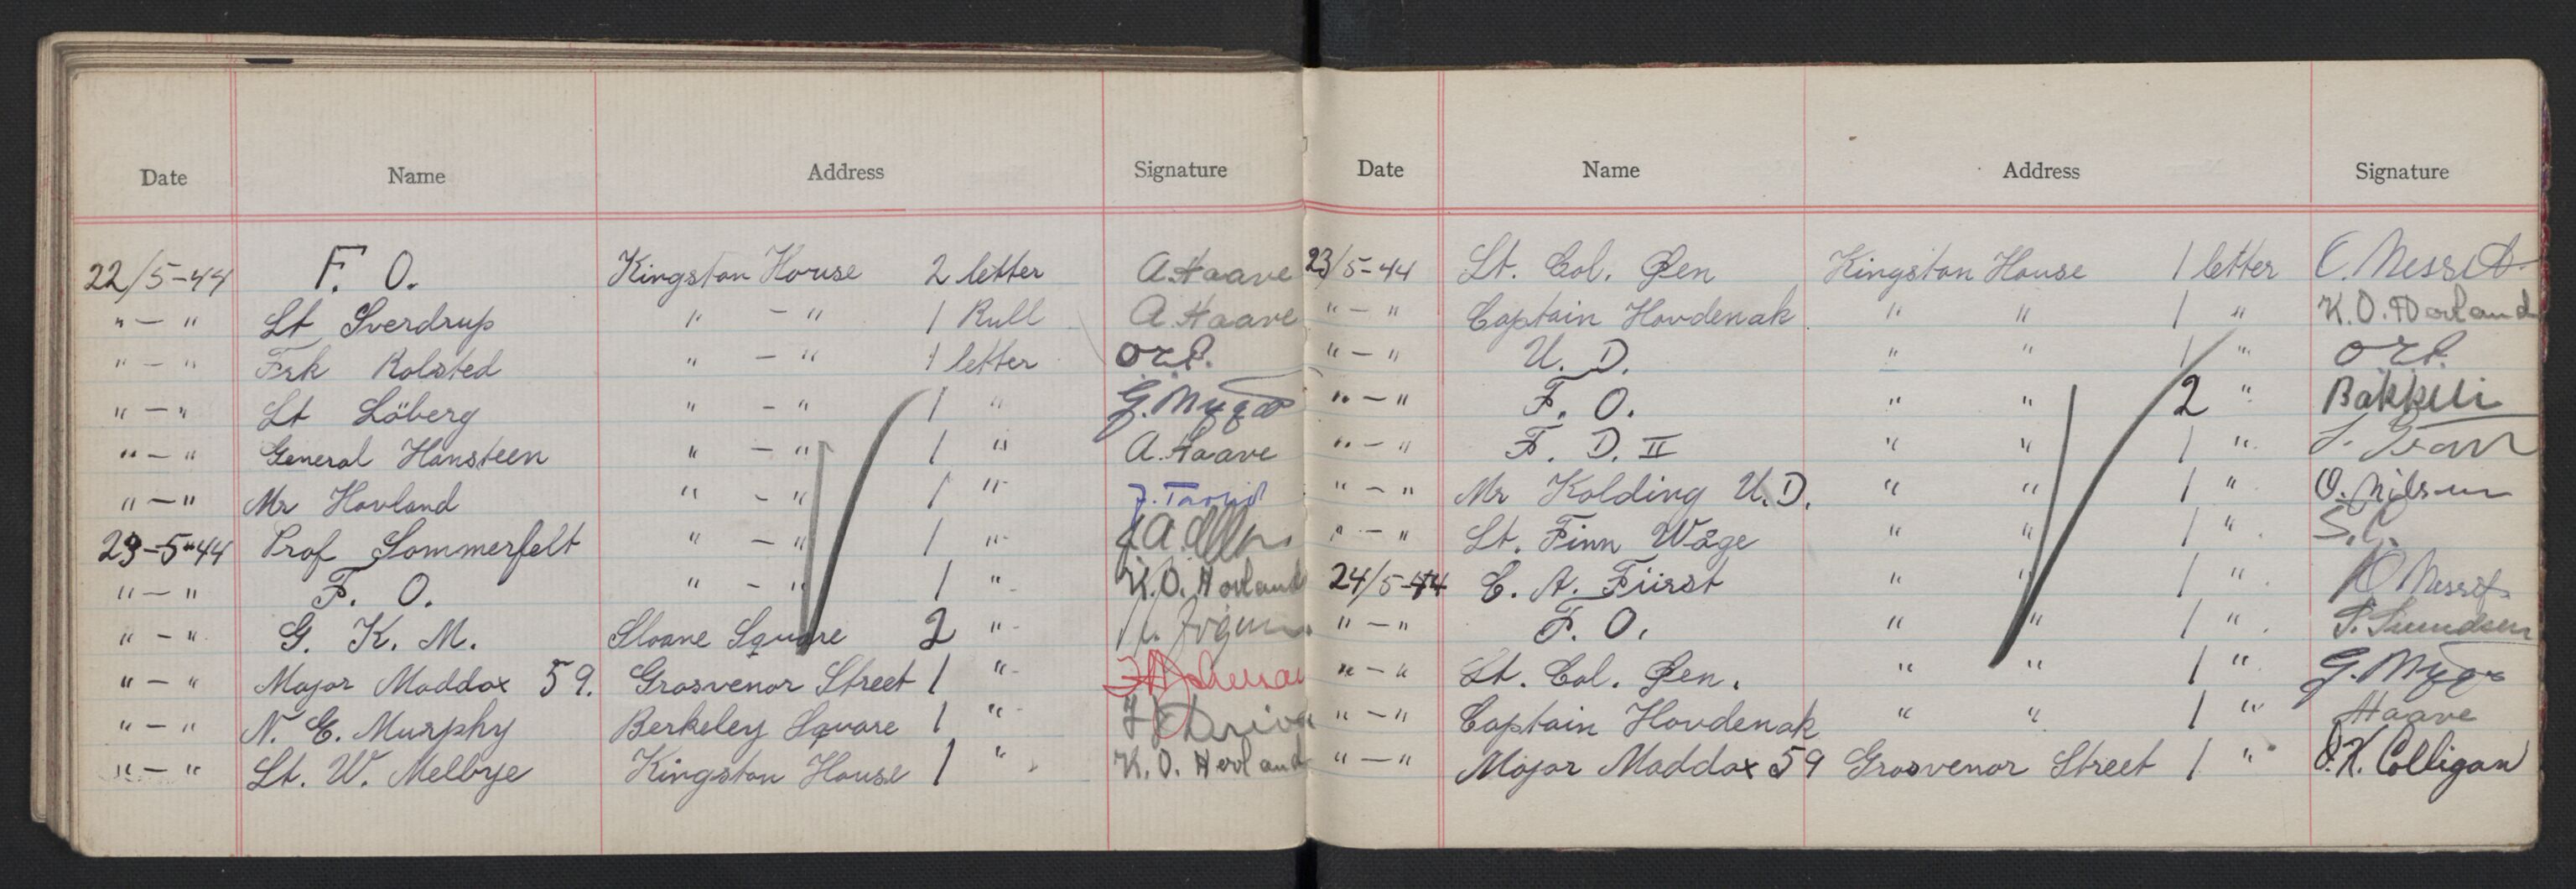 Date Name Address Signature
22/5-44 F. O. Kingston House 2 letter A. Haave
" — " Lt Sverdrup " — " 1 Rull A. Haave
" — " Frk Rolsted " — " 1 letter
" — " Lt Löberg " — " 1 "
" — " General Hansteen " — " 1 " A. Haave
" — " Mr Hovland " — " 1 "
23-5-44 Prof Sommerfelt " — " 1 "
" — " F. O. " — " 1 " K. O. Hovland
" — " G. K. M. Sloane Square 2 "
" — " Major Maddox 59. Grosvenor Street 1 "
" — " N. E. Murphy Berkeley Square 1 "
" — " Lt. W. Melbye Kingston House 1 " K. O. Hovland
Date Name Address Signature
23/5-44 Lt. Col. Øen Kingston House 1 letter
" — " Captain Hovdenak " " 1 " K. O. Hovland
" — " U. D. " " 1 "
" — " F. O. " " 2 " Bakkeli
" — " F. D. II " " 1 "
" — " Mr Kolding U. D. " " 1 " O. Nilsen
" — " Lt. Finn Wåge " " 1 "
24/5-44 C. A. Fürst " " 1 "
" — " F. O. " " 1 "
" — " Lt. Col. Øen. " " 1 "
" — " Captain Hovdenak " " 1 " Haave
" — " Major Maddox 59 Grosvenor Street 1 " Colligan